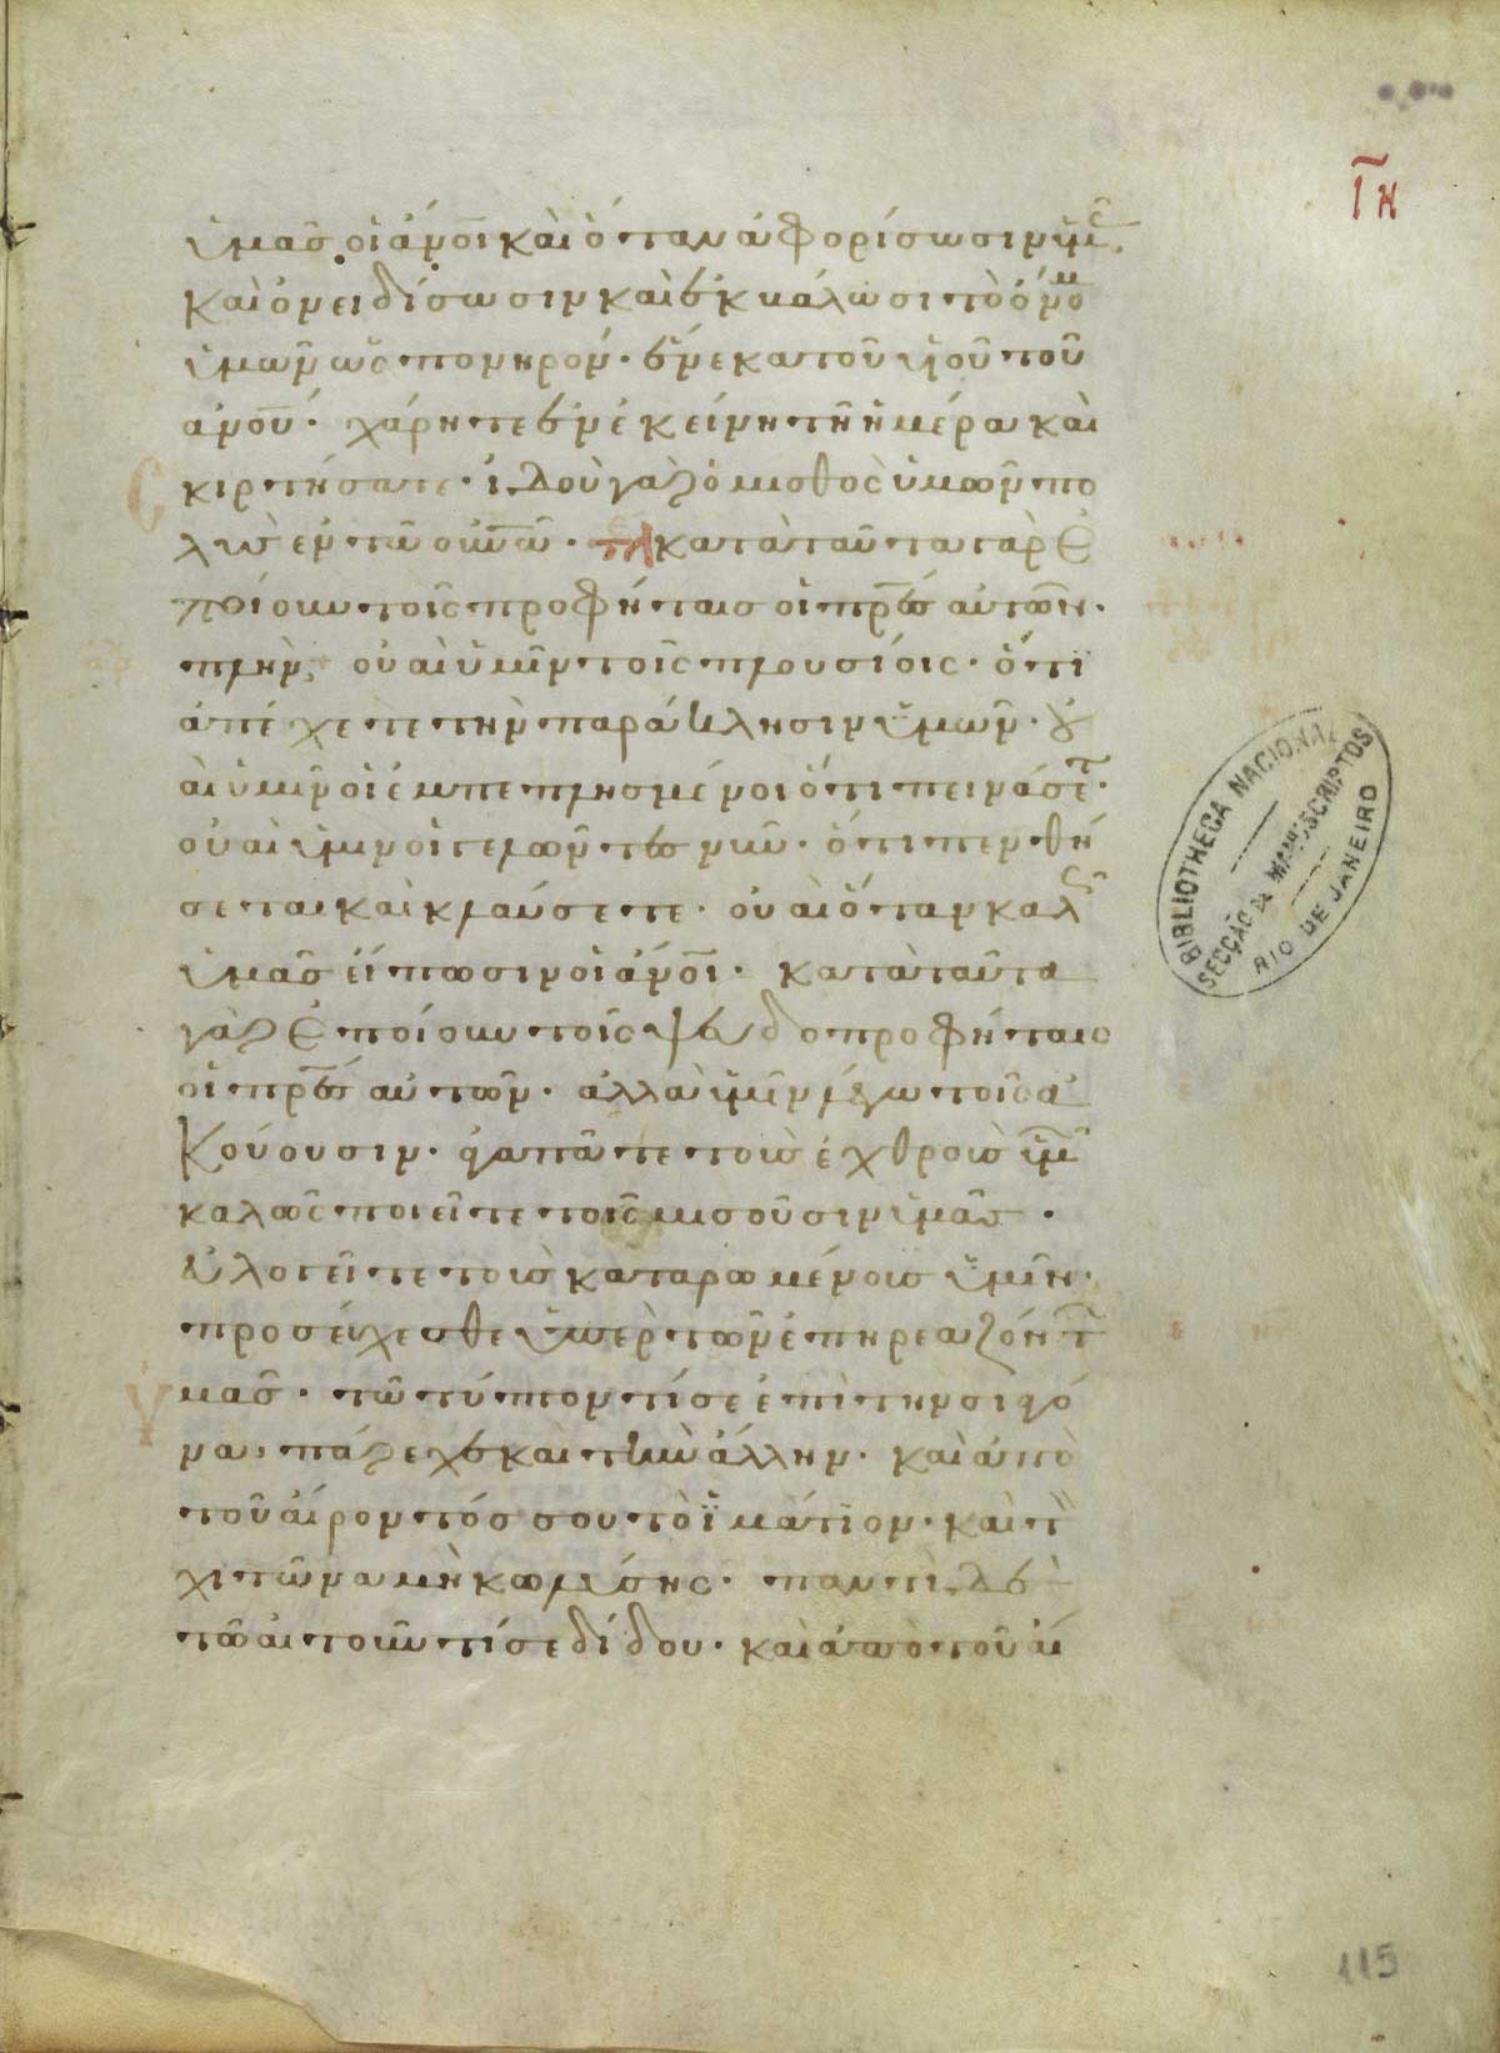 ιη
ὑμᾶς οἱ ἄνοι καὶ ὅταν ἀφορίσωσιν ὑμς.
καὶ ὀνειδίσωσιν καὶ ἐκβάλωσι τὸ ὄνομ
ὑμῶν ὡς πονηρόν· ἕνεκα τοῦ υἱοῦ τοῦ
ἀνου· χάρητε ἐν ἐκείνη τῆ ἡμέρα καὶ
σκιρτήσατε· ἰδοὺ γὰρ ὁ μισθὸς ὑμῶν πο
λὺς ἐν τῶ οὐνῶ· τλ κατὰ ταῦτα γὰρ ἐ
ποίουν τοῖς προφήταις οἱ πρες αὐτῶν·
πλὴν, οὐαὶ ὑμῖν τοῖς πλουσίοις· ὅτι
ἀπέχετε τὴν παράκλησιν ὑμῶν· οὐ
αὶ ὑμῖν οἱ ἐμπεπλησμένοι ὅτι πεινάσετ·
οὐαὶ ὑμῖν οἱ γελῶντες νῦν· ὅτι πενθή
σεται καὶ κλαύσετε· οὐαὶ ὅταν καλς
ὑμᾶς εἴπωσιν οἱ ἄνοι· κατὰ ταῦτα
γὰρ ἐποίουν τοῖς ψευδοπροφήταις
οἱ πρες αὐτῶν· ἀλλὰ ὑμῖν λέγω τοῖς ἀ
κούουσιν· ἀγαπᾶτε τοὺς ἐχθροὺς ὑμ
καλῶς ποιεῖτε τοῖς μισοῦσιν ὑμᾶς·
εὐλογεῖτε τοὺς καταρωμένους ὑμῖν·
προσεύχεσθε ὑπὲρ τῶν ἐπηρεαζόντ
ὑμᾶς· τῶ τύπτοντί σε ἐπὶ τὴν σιαγό
να, πάρεχε καὶ τὴν ἄλλην· καὶ ἀπὸ
τοῦ αἴροντός σου τὸ ϊμάτιον· καὶ τ
χιτῶνα μὴ κωλύσης· παντὶ δὲ
τῶ αἰτοῦντί σε δίδου· καὶ ἀπὸ τοῦ αἴ
BIBLIOTHECA NACIONAL
SECÇÃO DE MANUSCRIPTOS
RIO DE JANEIRO
115